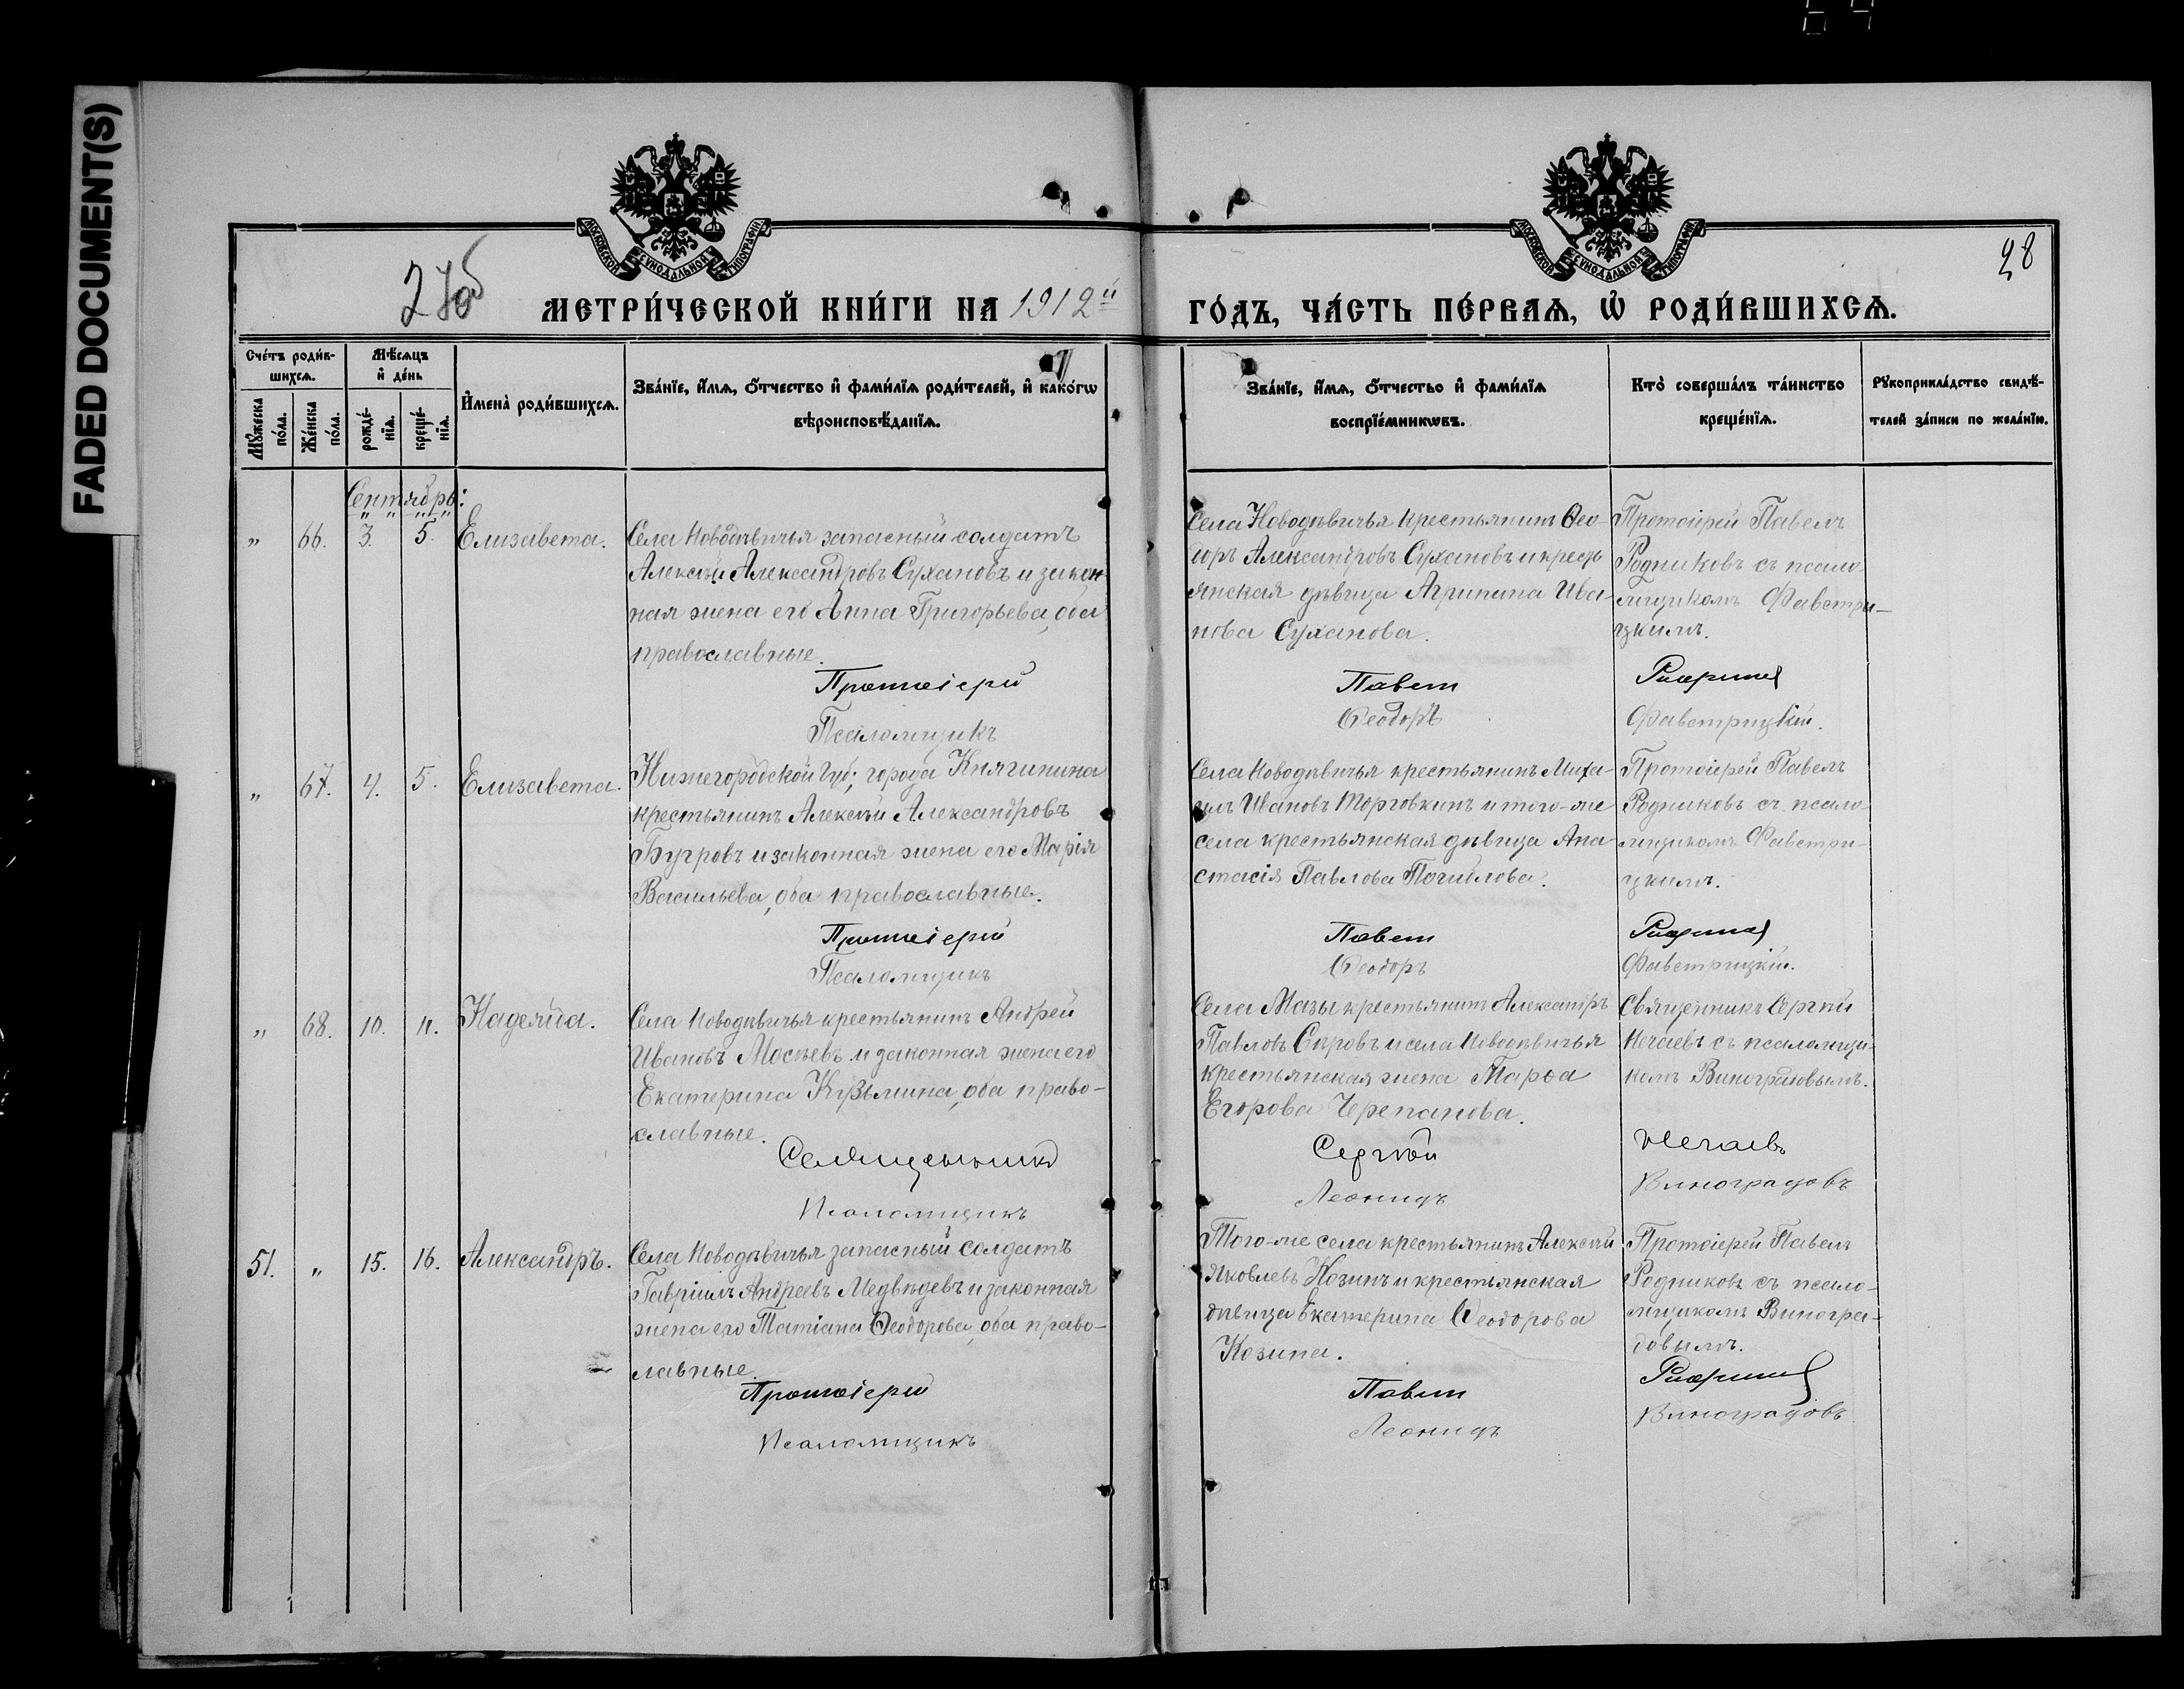 FADED DOCUMENT(S)
МОСКОВСКОЙ СѴНОДАЛЬНОЙ ТИПОГРАФІИ
МОСКОВСКОЙ СѴНОДАЛЬНОЙ ТИПОГРАФІИ
28
МЕТРИ́ЧЕСКОЙ КНИ́ГИ НА 1912й
ГО́ДЪ, ЧА́СТЬ ПЕ́РВАѦ, Ѡ҆ РОДИ́ВШИХСѦ.
Сче́тъ роди́в-
шихсѧ.
Мꙋ́жеска по́ла.
Же́нска по́ла.
Мѣ́сѧцъ
и҆ де́нь
рожде́-
нїѧ.
креще́-
нїѧ.
И҆мена̀ роди́вшихсѧ.
Зва́нїе, и҆́мѧ, о҆́тчество и҆ фами́лїѧ роди́телей, и҆ како́гѡ
вѣроисповѣ́данїѧ.
Зва́нїе, и҆́мѧ, о҆́тчестьо и҆ фами́лїѧ
воспрїе́мникѡвъ.
Кто̀ соверша́лъ та́инство
креще́нїѧ.
Рꙋкоприкла́дство свидѣ́-
телей за́писи по жела́нїю.
Сентябрь:
„ 66. 3. 5. Елизавета.
Села Новодѣвичья запасный солдатъ
Алексѣй Александровъ Сухановъ и закон-
ная жена его Анна Григорьева, оба
православные.
Протоіерей
Псаломщикъ
Села Новодѣвичья крестьянинъ Ѳео-
доръ Александровъ Сухановъ и кресть
янская дѣвица Агрипина Ива-
нова Суханова.
Павелъ
Ѳеодоръ
Протоіерей Павелъ
Родниковъ съ псало-
мщикомъ Фавстри-
цкимъ.
Родниковъ
Фавстрицкій.
„ 67. 4. 5. Елизавета.
Нижегородской губ; города Княгинина
крестьянинъ Алексѣй Александровъ
Бугровъ и законная жена его Марія
Васильева, оба православные.
Протоіерей
Псаломщикъ
Села Новодѣвичья крестьянинъ Миха-
илъ Ивановъ Торговкинъ и того-же
села крестьянская дѣвица Ана-
стасія Павлова
Павелъ
Ѳеодоръ
Протоіерей Павелъ
Родниковъ съ псало-
мщикомъ Фавстри-
цкимъ.
Родниковъ
Фавстрицкій.
„ 68. 10. 11. Надежда.
Села Новодѣвичья крестьянинъ Андрей
Ивановъ Мосѣевъ и законная жена его
Екатерина Кузьмина, оба право-
славные.
Священникъ
Псаломщикъ
Села Мазы крестьянинъ Александръ
Павловъ и села Новодѣвичья
крестьянская жена Марѳа
Егорова Черепанова.
Сергѣй
Леонидъ
Священникъ Сергѣй
Нечаевъ съ псаломщи-
комъ Виноградовымъ.
Нечаевъ
Виноградовъ
51. „ 15. 16. Александръ.
Села Новодѣвичья запасный солдатъ
Гавріилъ Андреевъ Медвѣдевъ и законная
жена его Татіана Ѳеодорова, оба право-
лавные.
Протоіерей
Псаломщикъ
Того-же села крестьянинъ Алексѣй
Яковлевъ Козинъ и крестьянская
дѣвица Екатерина Ѳеодорова
Козина.
Павелъ
Леонидъ
Протоіерей Павелъ
Родниковъ съ псало-
мщикомъ Виногра-
довымъ.
Родниковъ
Виноградовъ